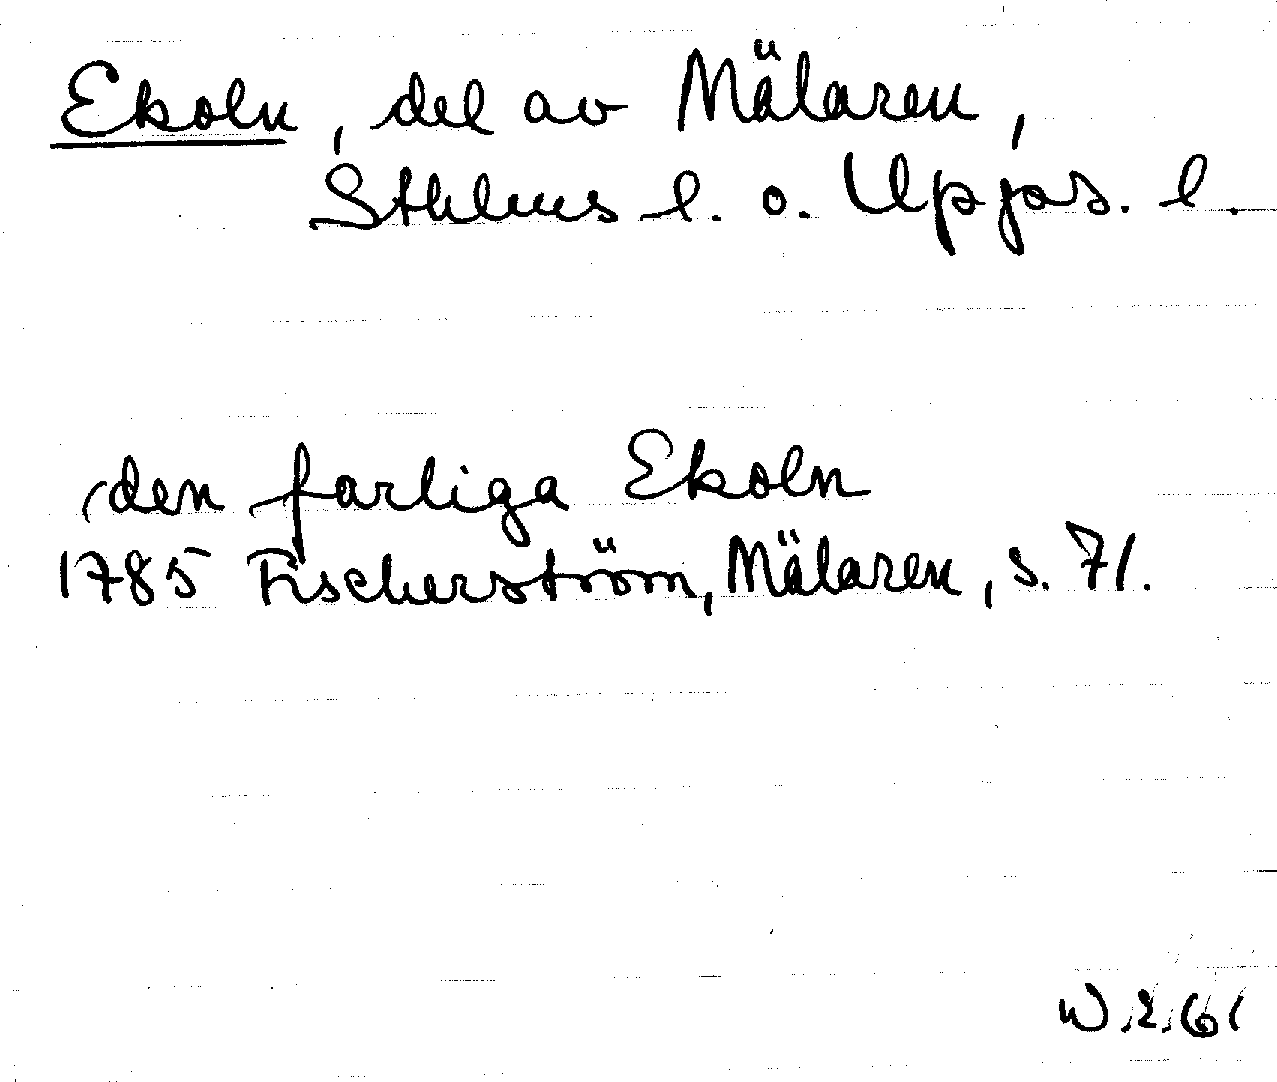 Ekoln, del av Mälaren,
Sthlms l. o. Upps. l.
den farliga Ekoln
1785 Fischerström, Mälaren, s. 71.